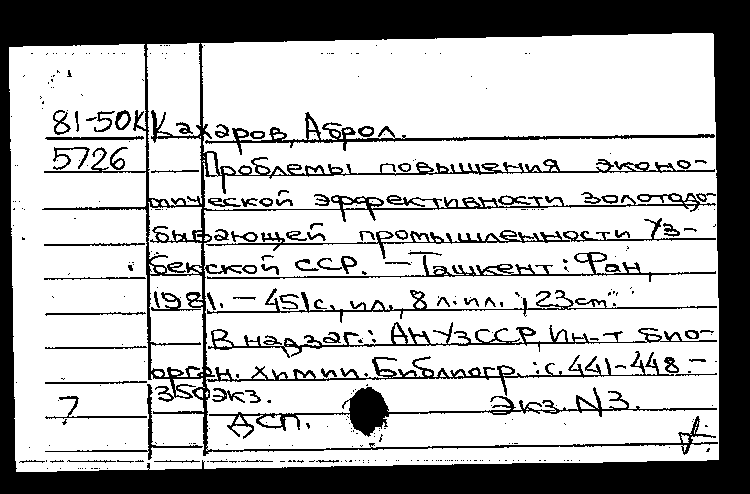 81-50К Кахаров, Аброл.
5726 Проблемы повышения эконо-
мической эффективности золотодо-
бывающей промышленности Уз-
бекской ССР. — Ташкент: Фан,
1981. — 451с., ил., 8 л.ил.; 23см.
В надзаг.: АН УзССР, Ин-т био-
орган. химии. Библиогр.: с.441-448. —
350экз.
7 ДСП. Экз. N3.